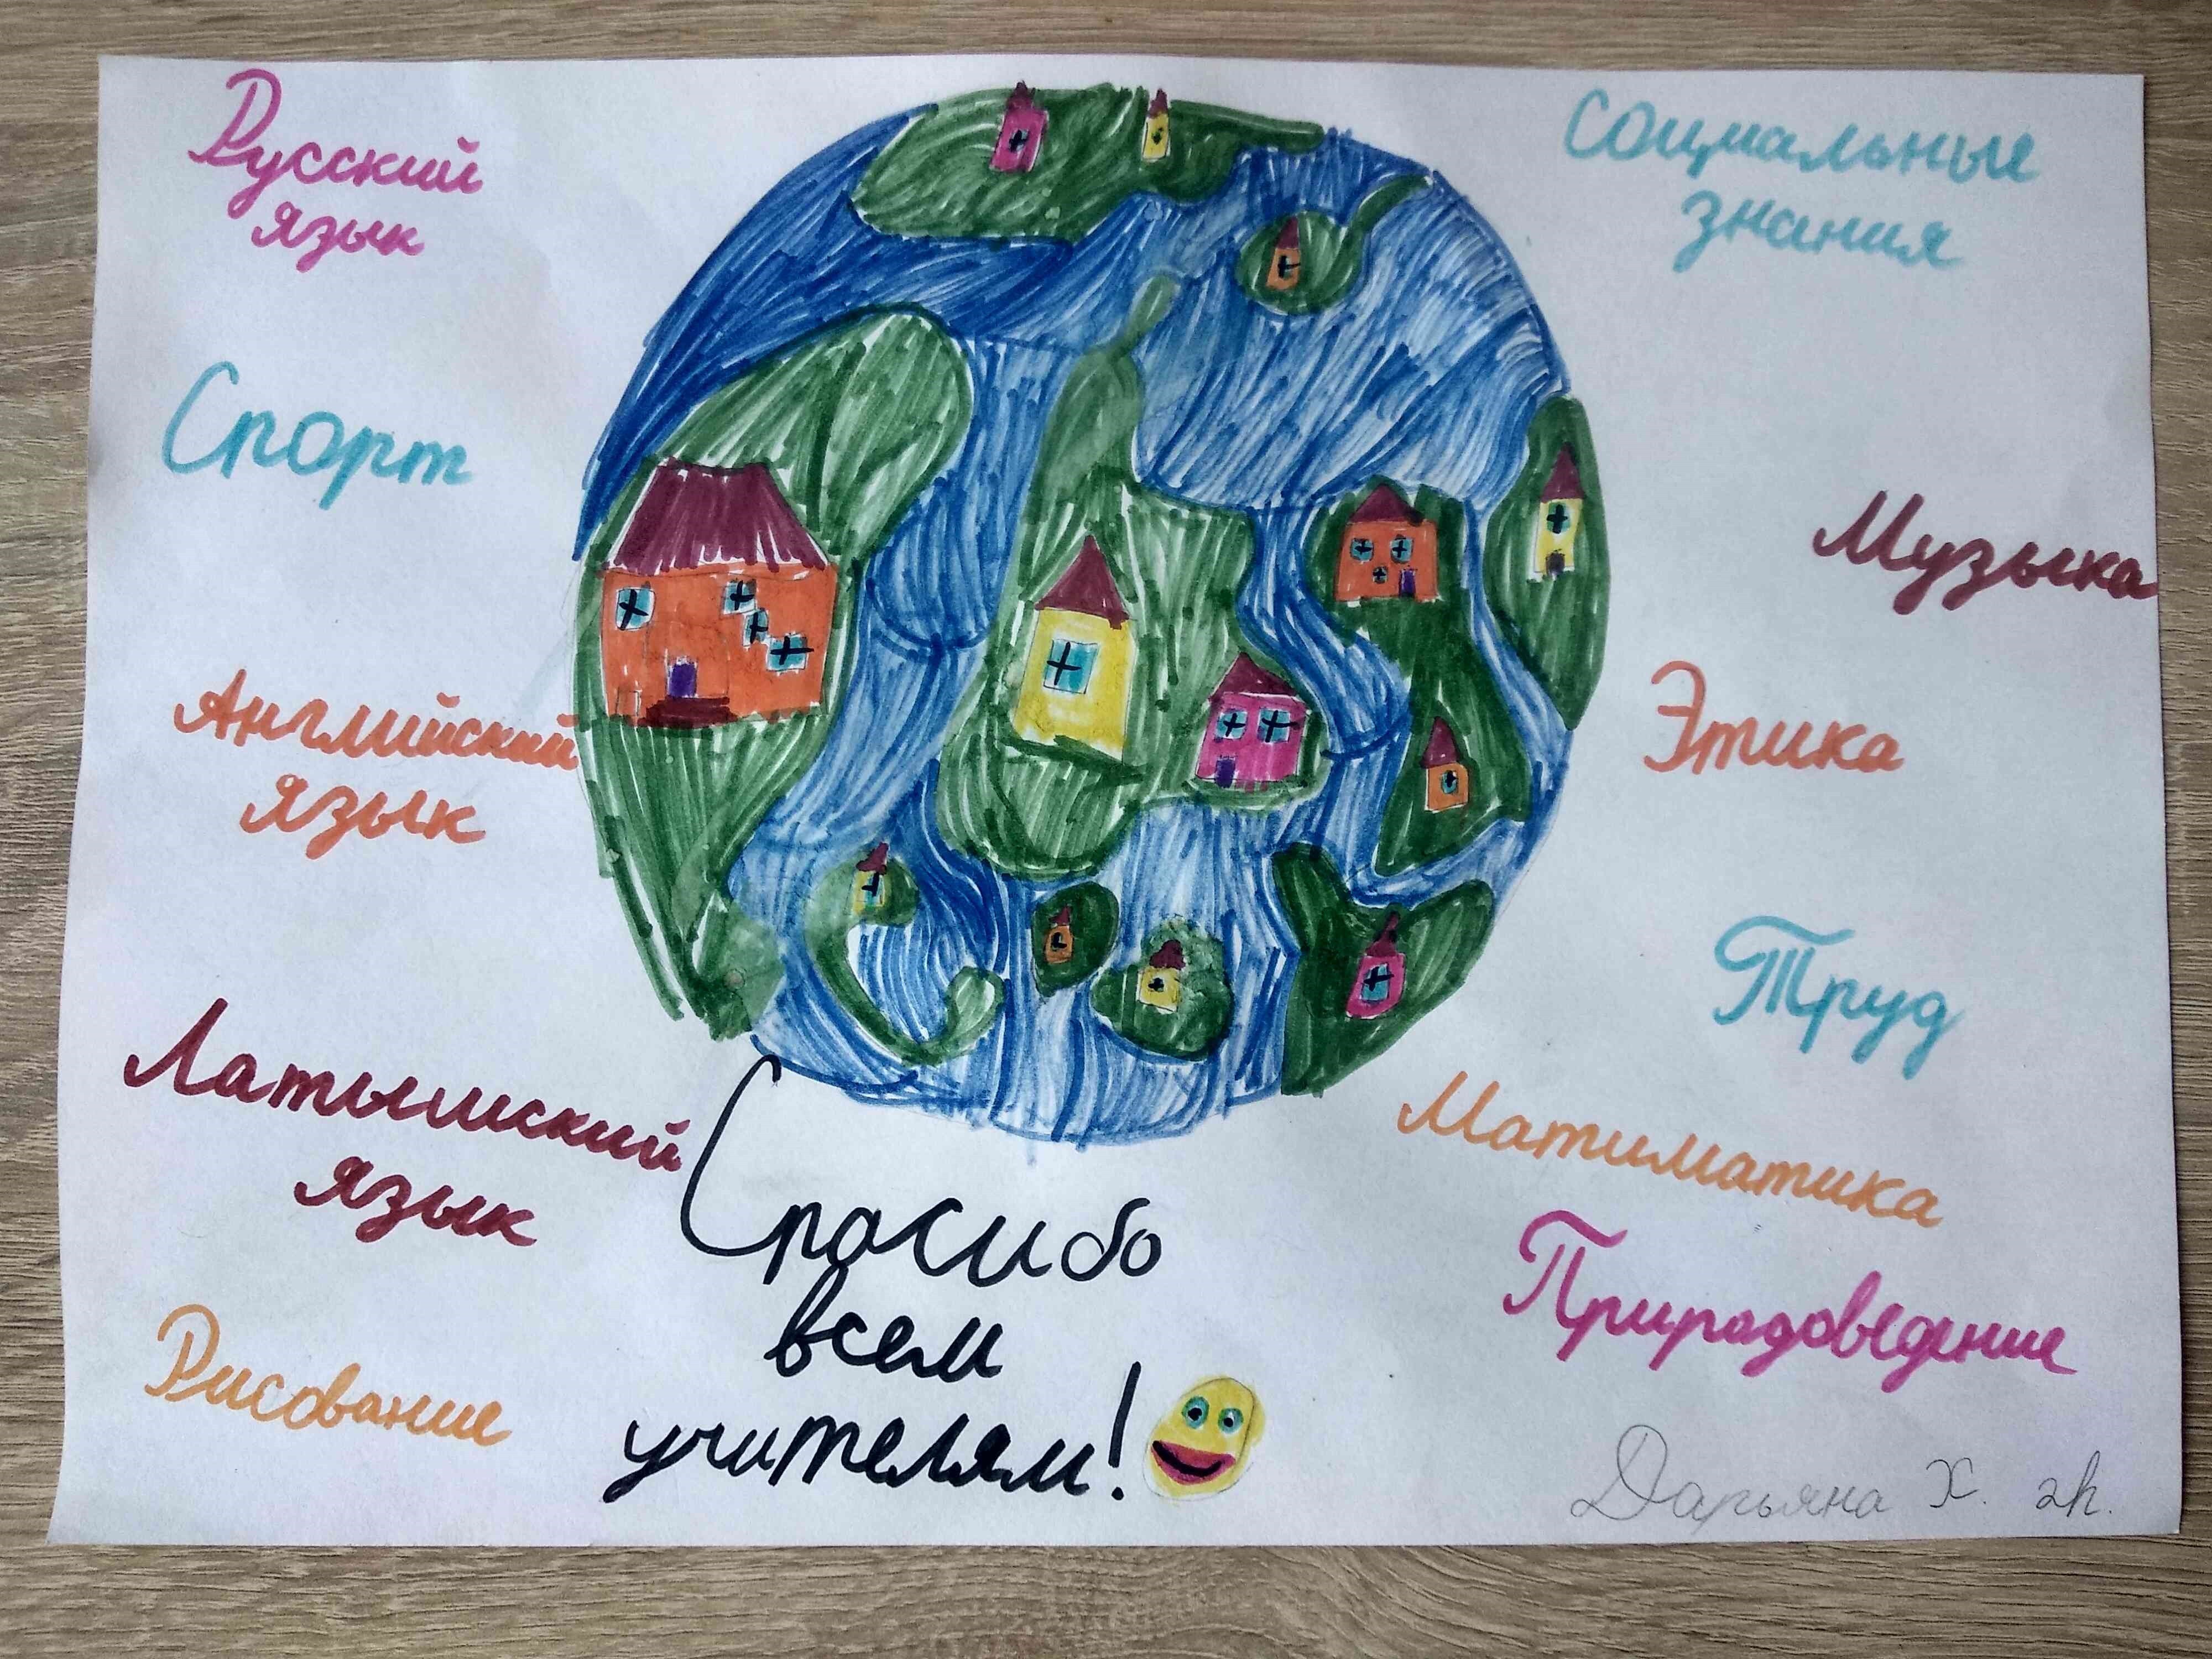 Русский
язык
Спорт
Английский
язык
Латышский
язык
Рисование
Социальные
знания
Музыка
Этика
Труд
Матиматика
Прирадоведение
Спасибо
всем
учителям!
Дарьяна Х. 2h.